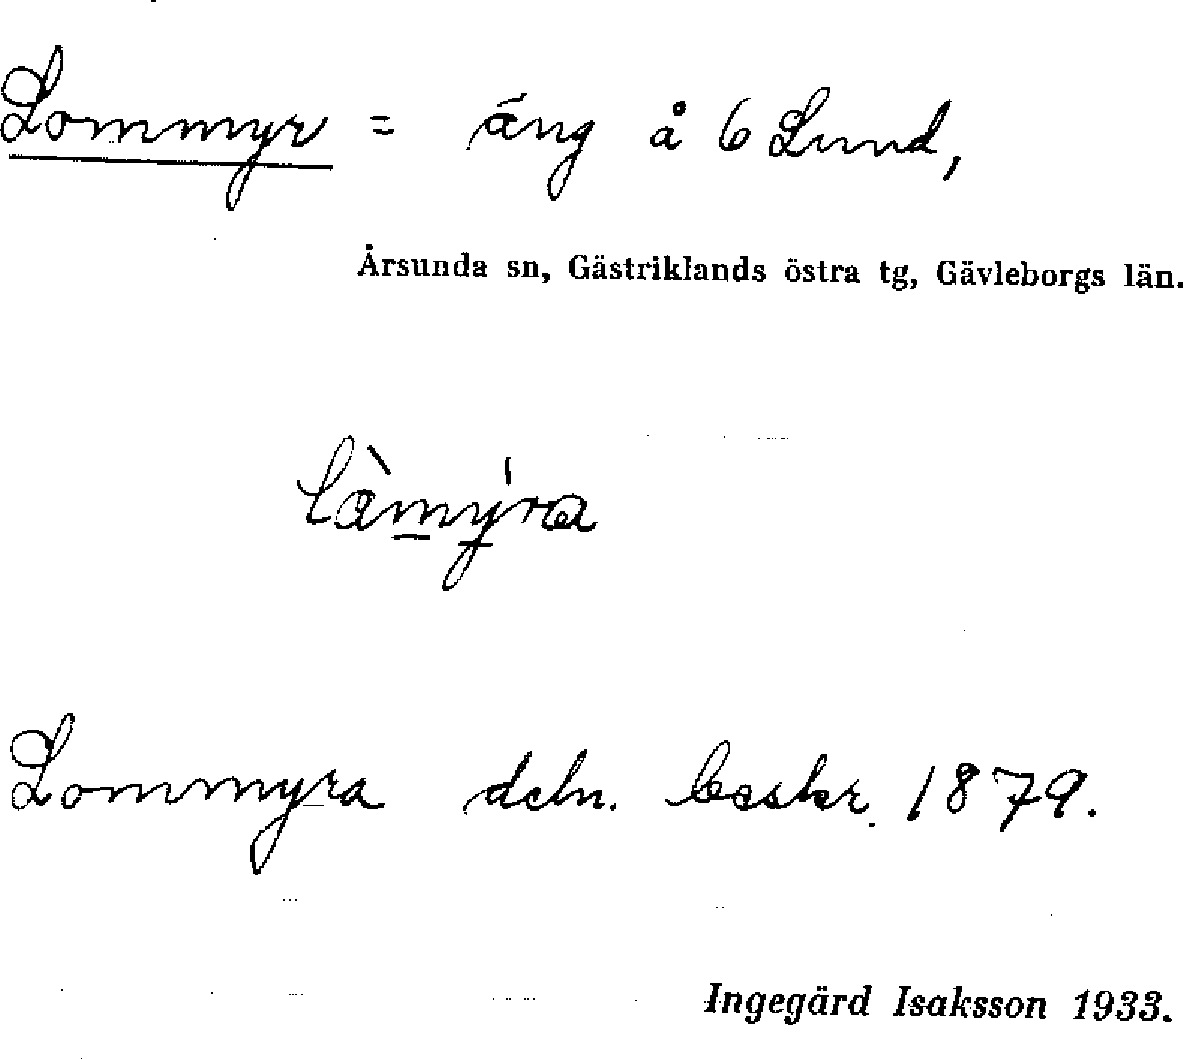 Lommyr = äng å 6 Lund,
Årsunda sn, Gästriklands östra tg, Gävleborgs län.
Lommyra deln. beskr. 1879.
Ingegärd Isaksson 1933.